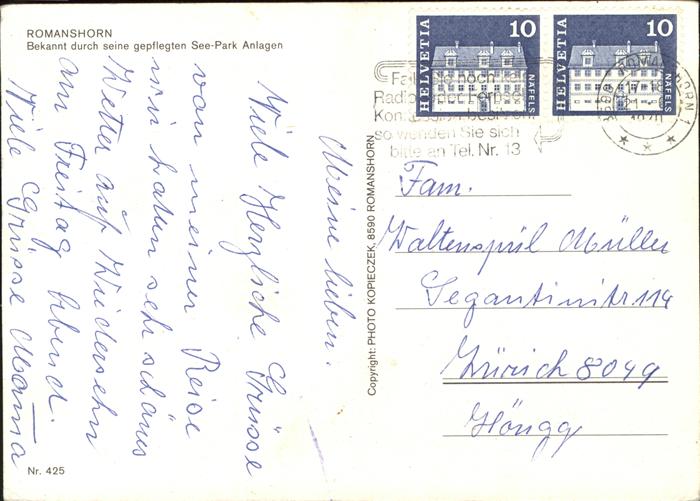 ROMANSHORN
Bekannt durch seine gepflegten See-Park Anlagen
Meine lieben.
Viele Herzliche Grüsse
von meiner Reise
wir haben seh schöns
Wetter auf Widersehn
am Freitag Abend.
Viele Grüsse Mama
Nr. 425
Copyright: PHOTO KOPIECZEK, 8590 ROMANSHORN
HELVETIA 10 NÄFELS
HELVETIA 10 NÄFELS
Radio
so wenden Sie sich
bitte an Tel. Nr. 13
8590 ROMANSHORN 1
Fam.
Waltenspül Müller
Segantinistr 114
Zürich 8049
Höngg